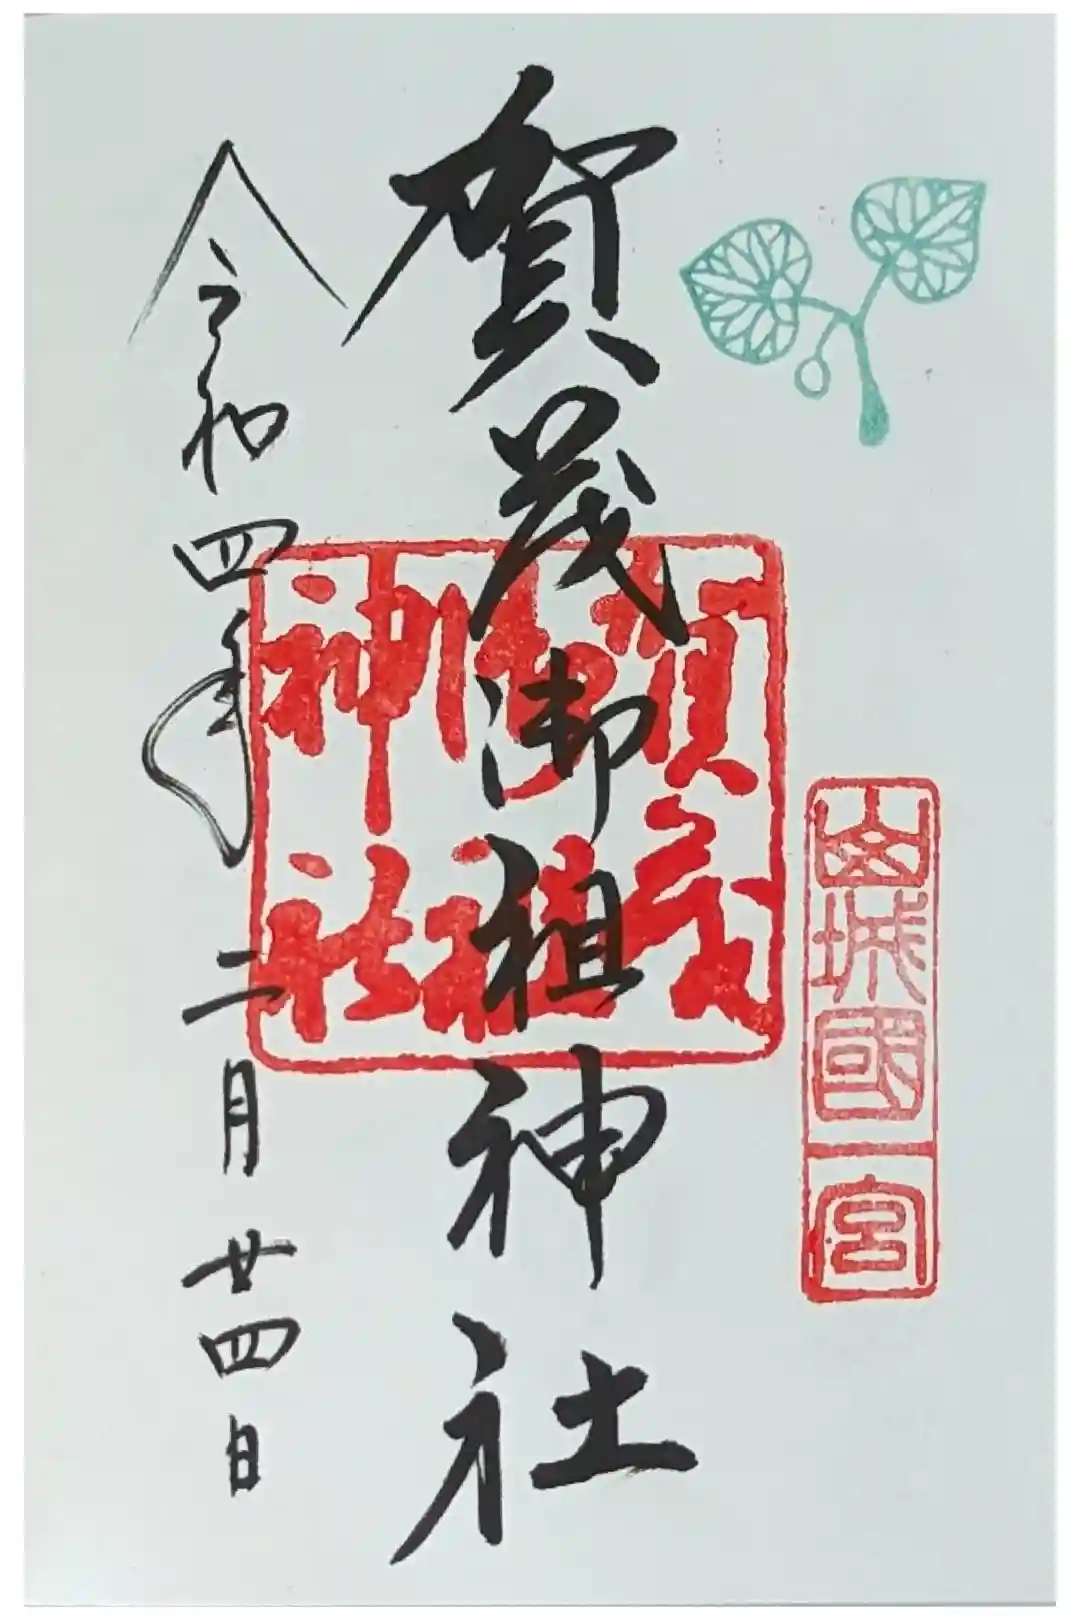 山城國一宮
賀茂御祖神社
賀茂御祖神社
令和四年二月廿四日